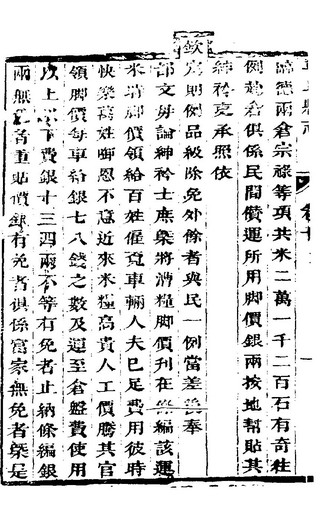 諭德兩倉宗祿等項共米二萬一千二百石有奇往
例赴倉俱係民間儹運所用脚價銀兩按地幫貼其
紳衿吏承照依
欽
定則例品級除免外餘者與民一例當差後奉
部文毋論紳衿士庶槩將漕糧脚價刋在條編該運
米須脚價領給百姓僱覔車輛人夫已足費用彼時
快樂萬姓啣恩不意近來米糧高貴人工價騰其官
領脚價每車給銀七八錢之數及運至倉盤費使用
以上下費銀十三四兩不等有免者止納條編銀
兩無免者重貼價銀有免者俱係富家無免者槩是